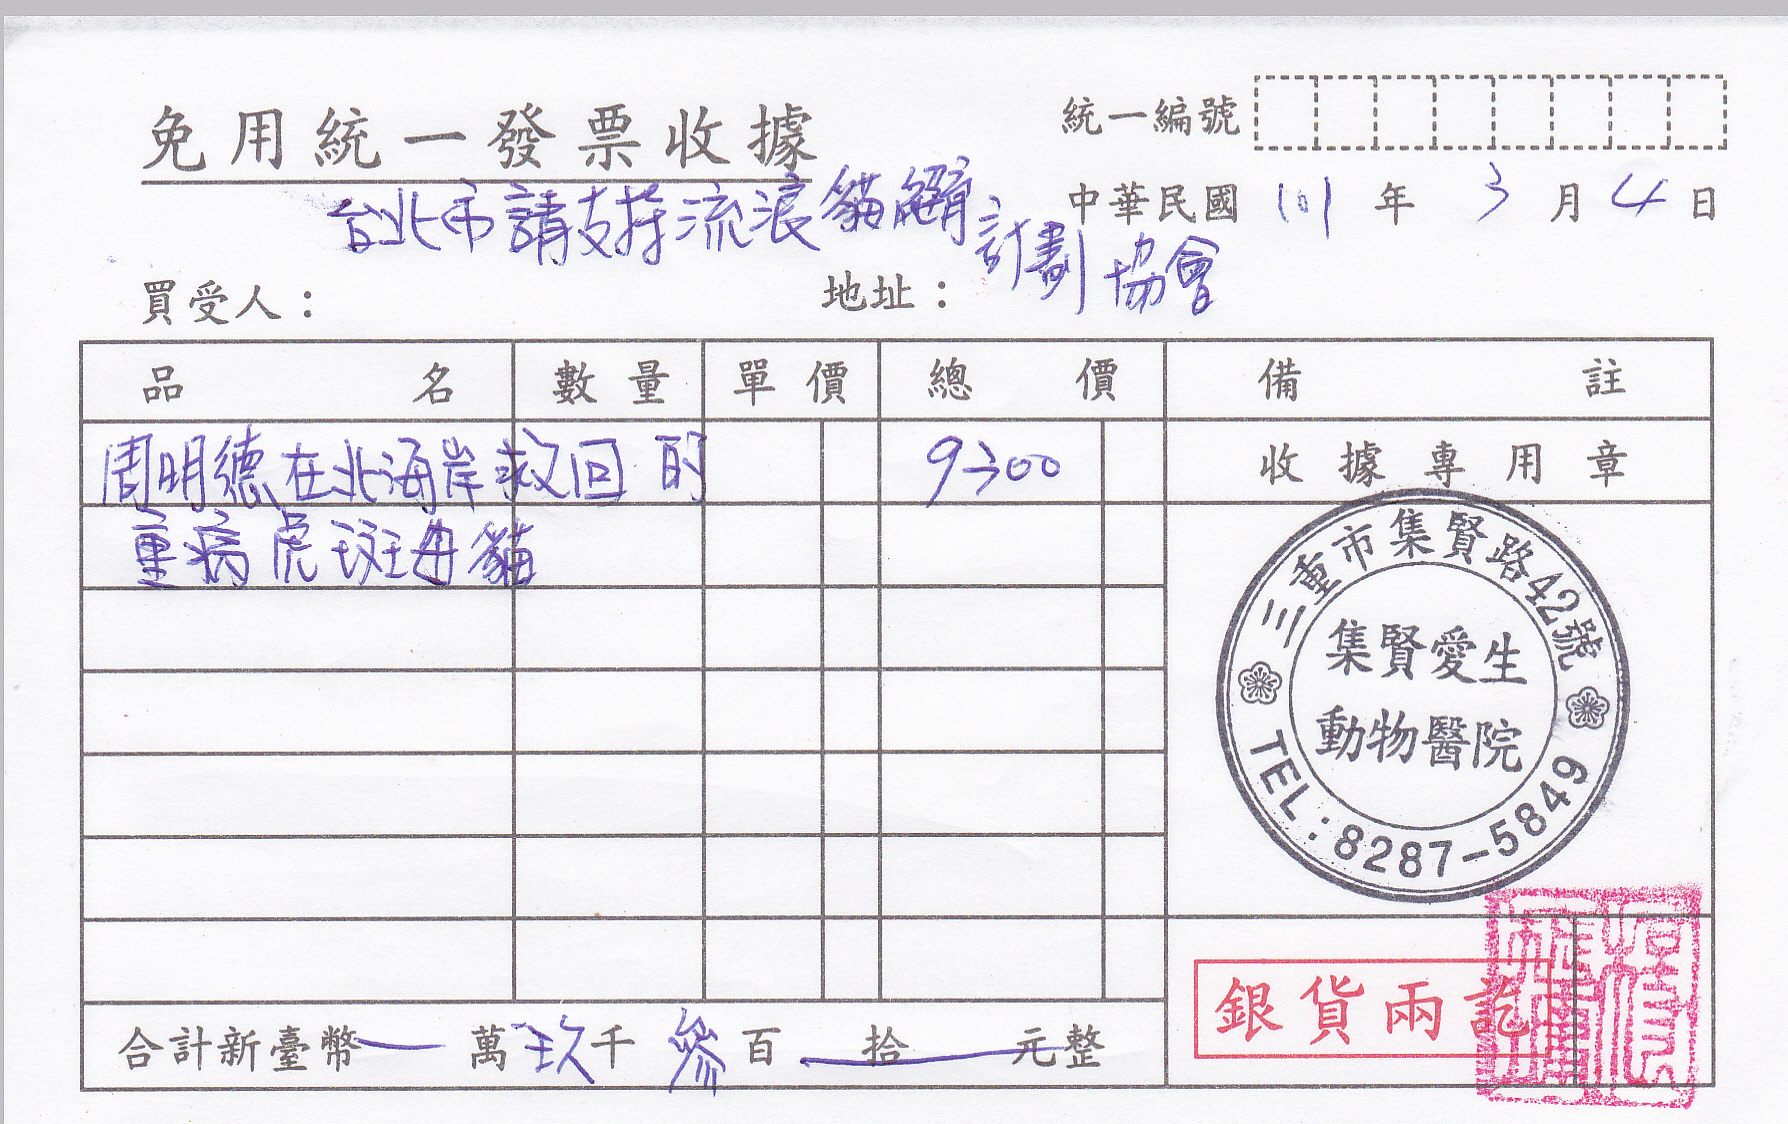 免用統一發票收據
統一編號
中華民國 101 年 3 月 4 日
台北市請支持流浪貓絕育計劃協會
買受人：
地址：
品名 數量 單價 總價 備註
周明德在北海岸救回的 9300 收據專用章
重病虎斑母貓
三重市集賢路42號
集賢愛生
動物醫院
TEL:8287-5849
銀貨兩訖
合計新臺幣 萬 玖 千 參 百 拾 元整